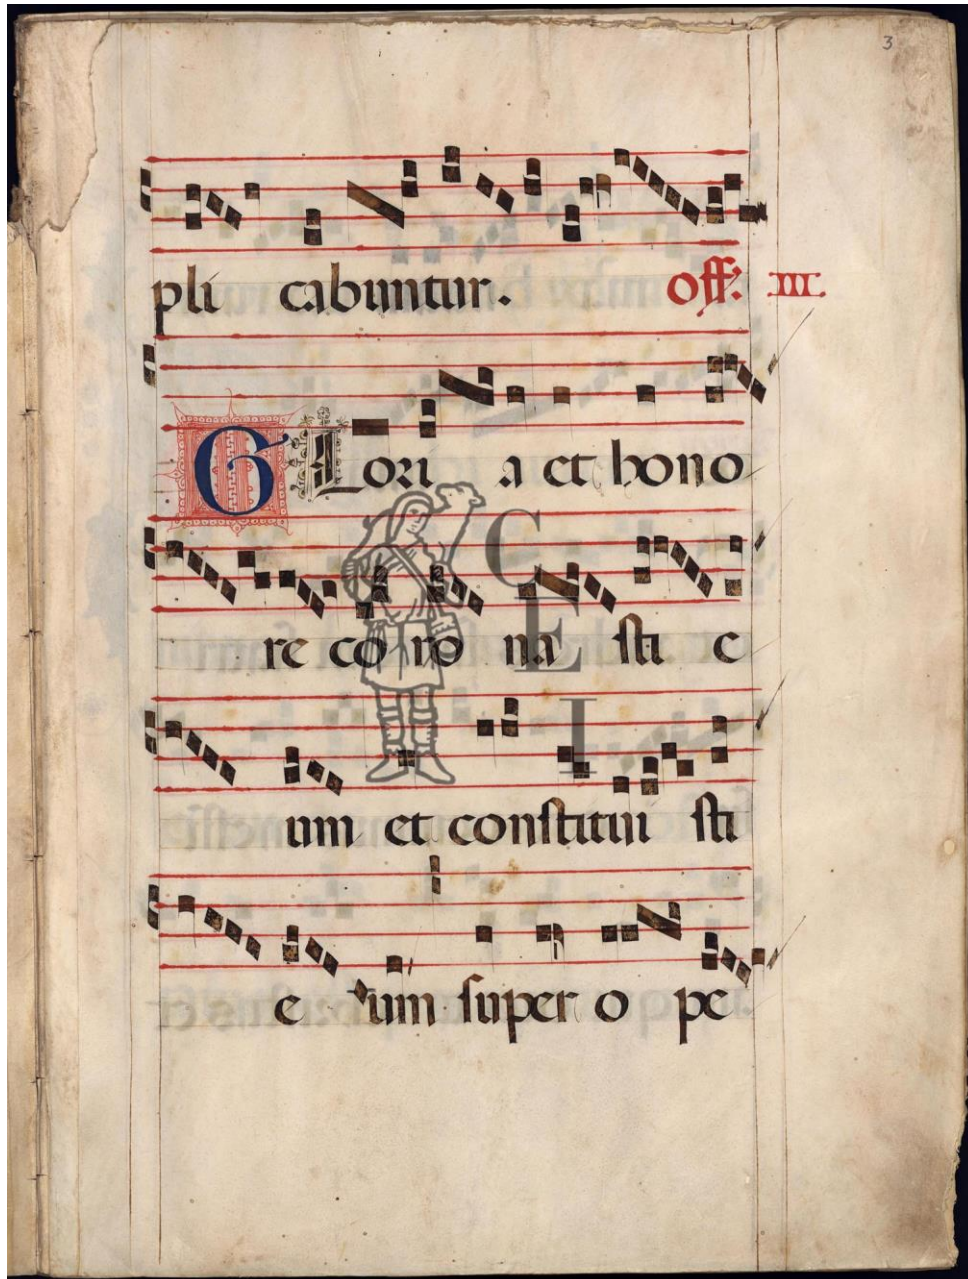 3
pli cabuntur. Off. III.
GLori a et hono
re co ro na sti e
um et constitui sti
e um super o pe
C
E
I